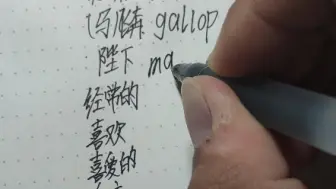 (马)飞奔 gallop
陛下 ma
经常的
喜欢
喜爱的